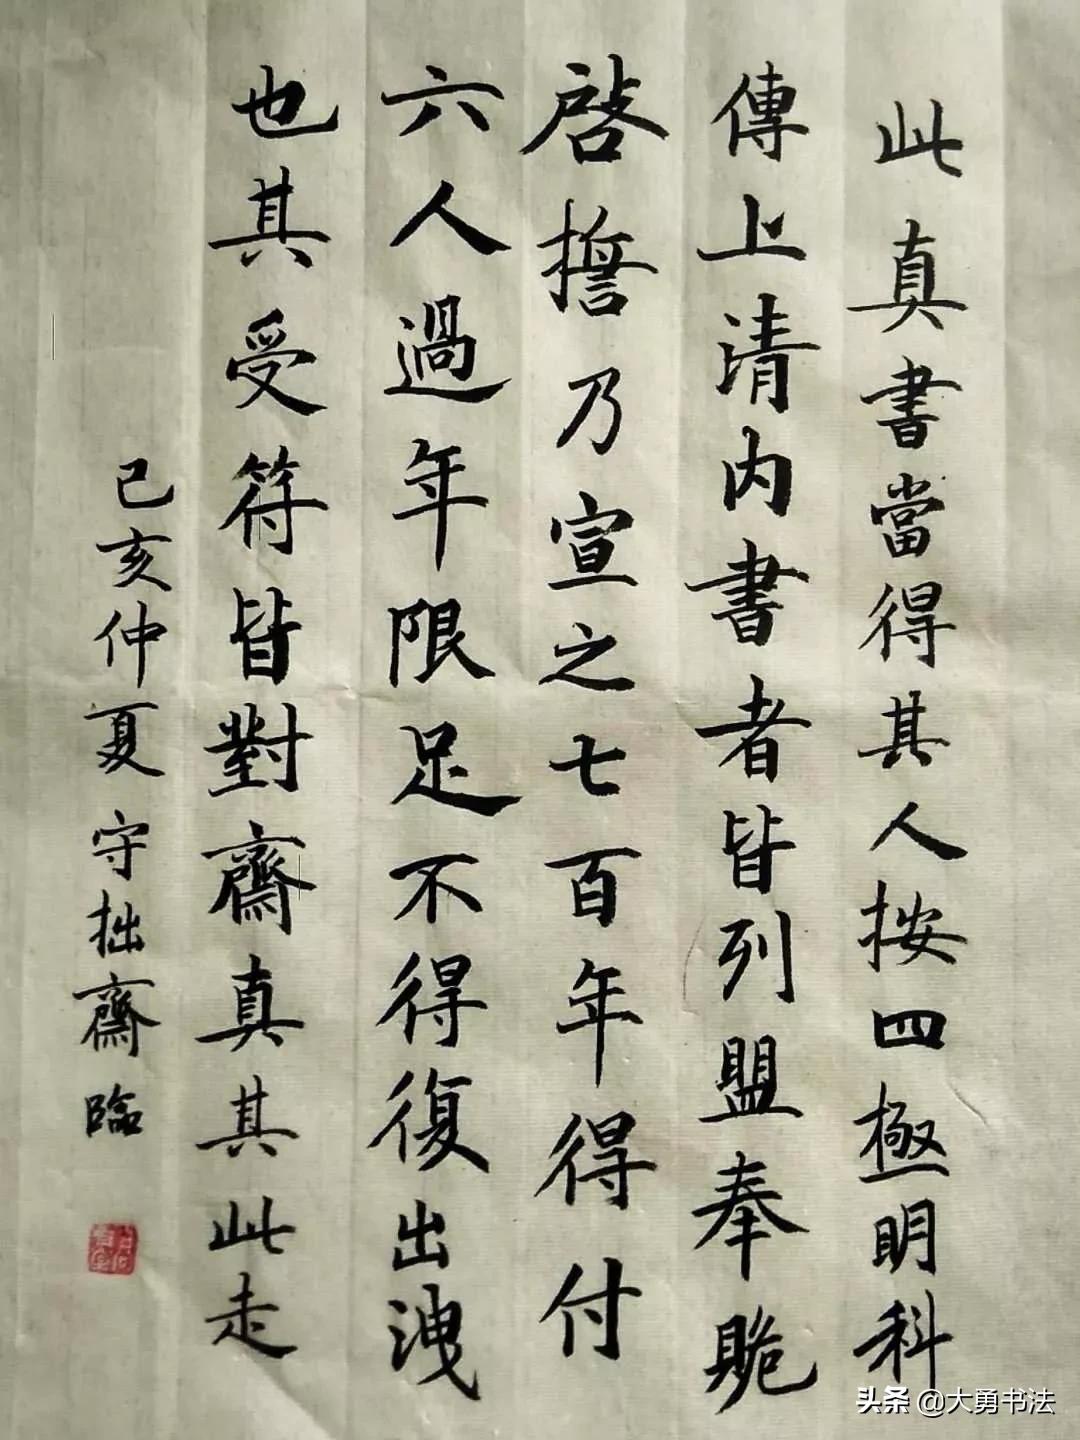 此真書當得其人按四極明科
傳上清内書者皆列盟奉賭
啓擔乃宣之七百年得付
六人過年限足不得復出洩
也其受符皆對齋真其此走
己亥仲夏守拙齋臨
头条@大勇书法